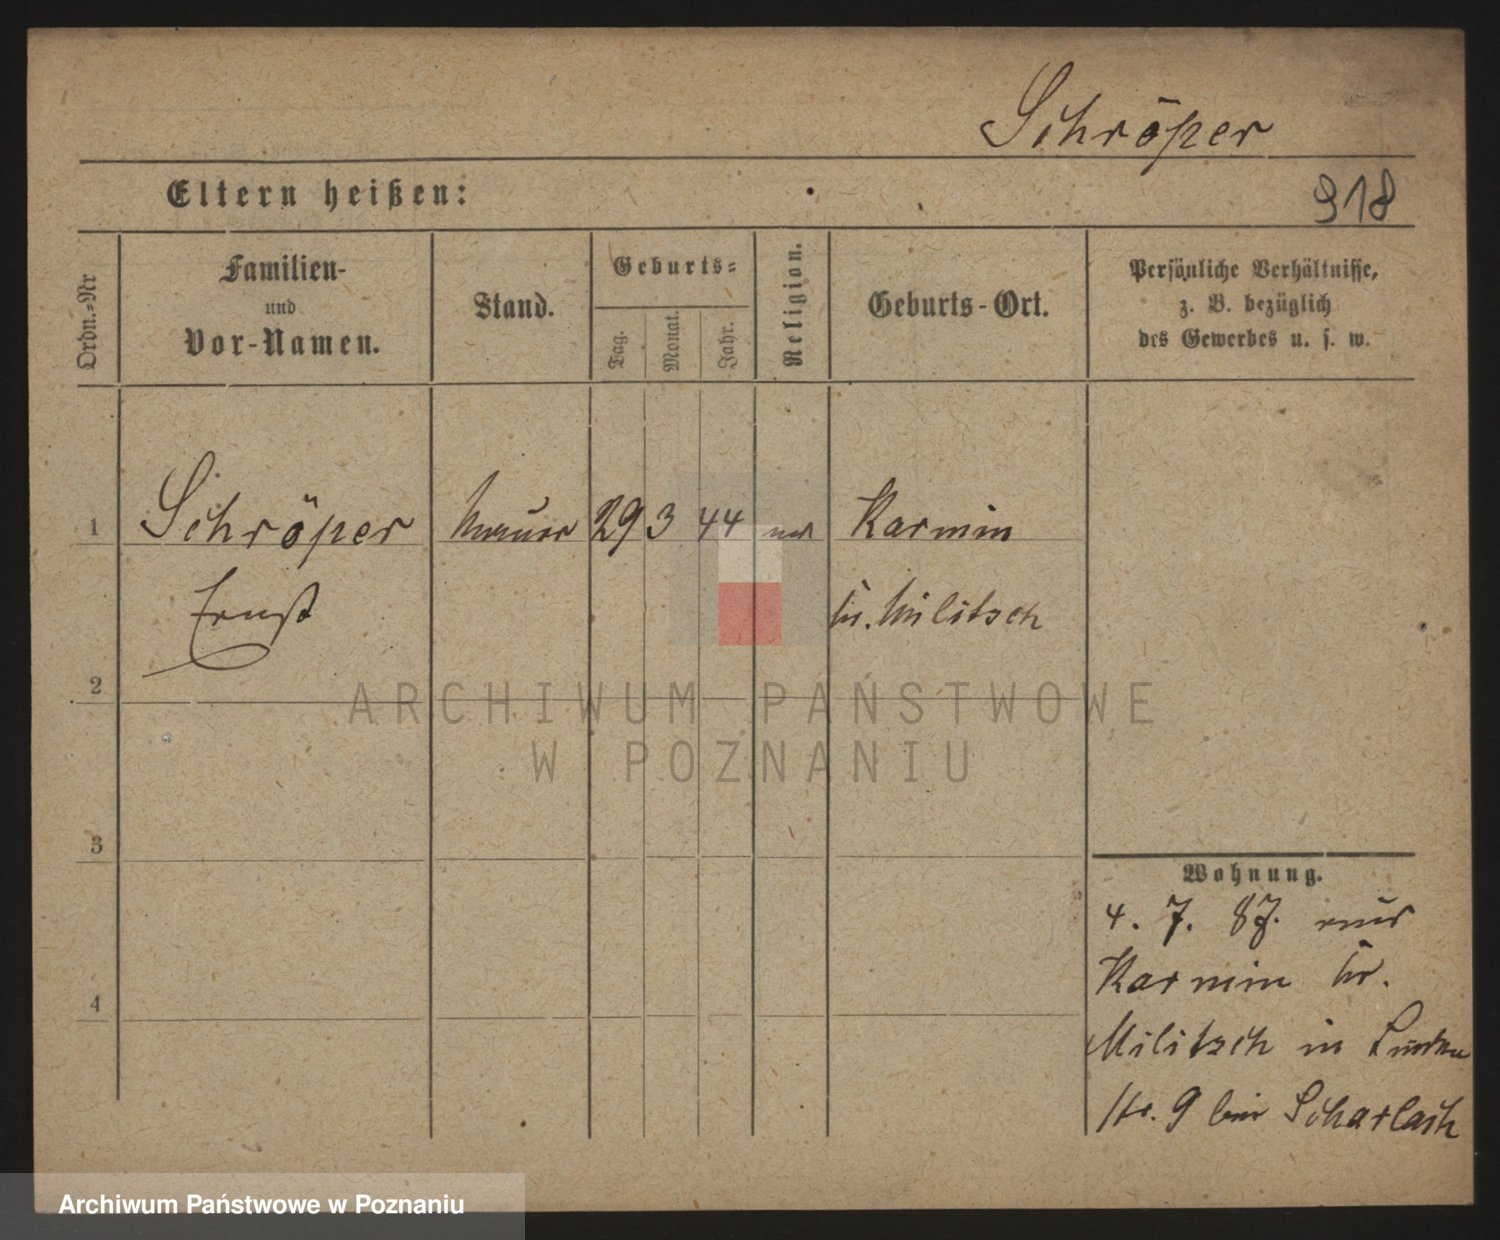 Schröper
Eltern heißen:
918
Ordn.-Nr
Familien-
und
Vor-Namen.
Stand.
Geburts-
Tag.
Monat.
Jahr.
Religion.
Geburts-Ort.
Persönliche Verhältnisse,
z. B. bezüglich
des Gewerbes u. s. w.
1 Schröper 29 3 44 Karmin
Ernst Kr. Militsch
2
3
4
Wohnung.
4. 7. 87. aus
Karmin Kr.
Militsch in
str. 9 bei Scharlach
ARCHIWUM PAŃSTWOWE
W POZNANIU
Archiwum Państwowe w Poznaniu